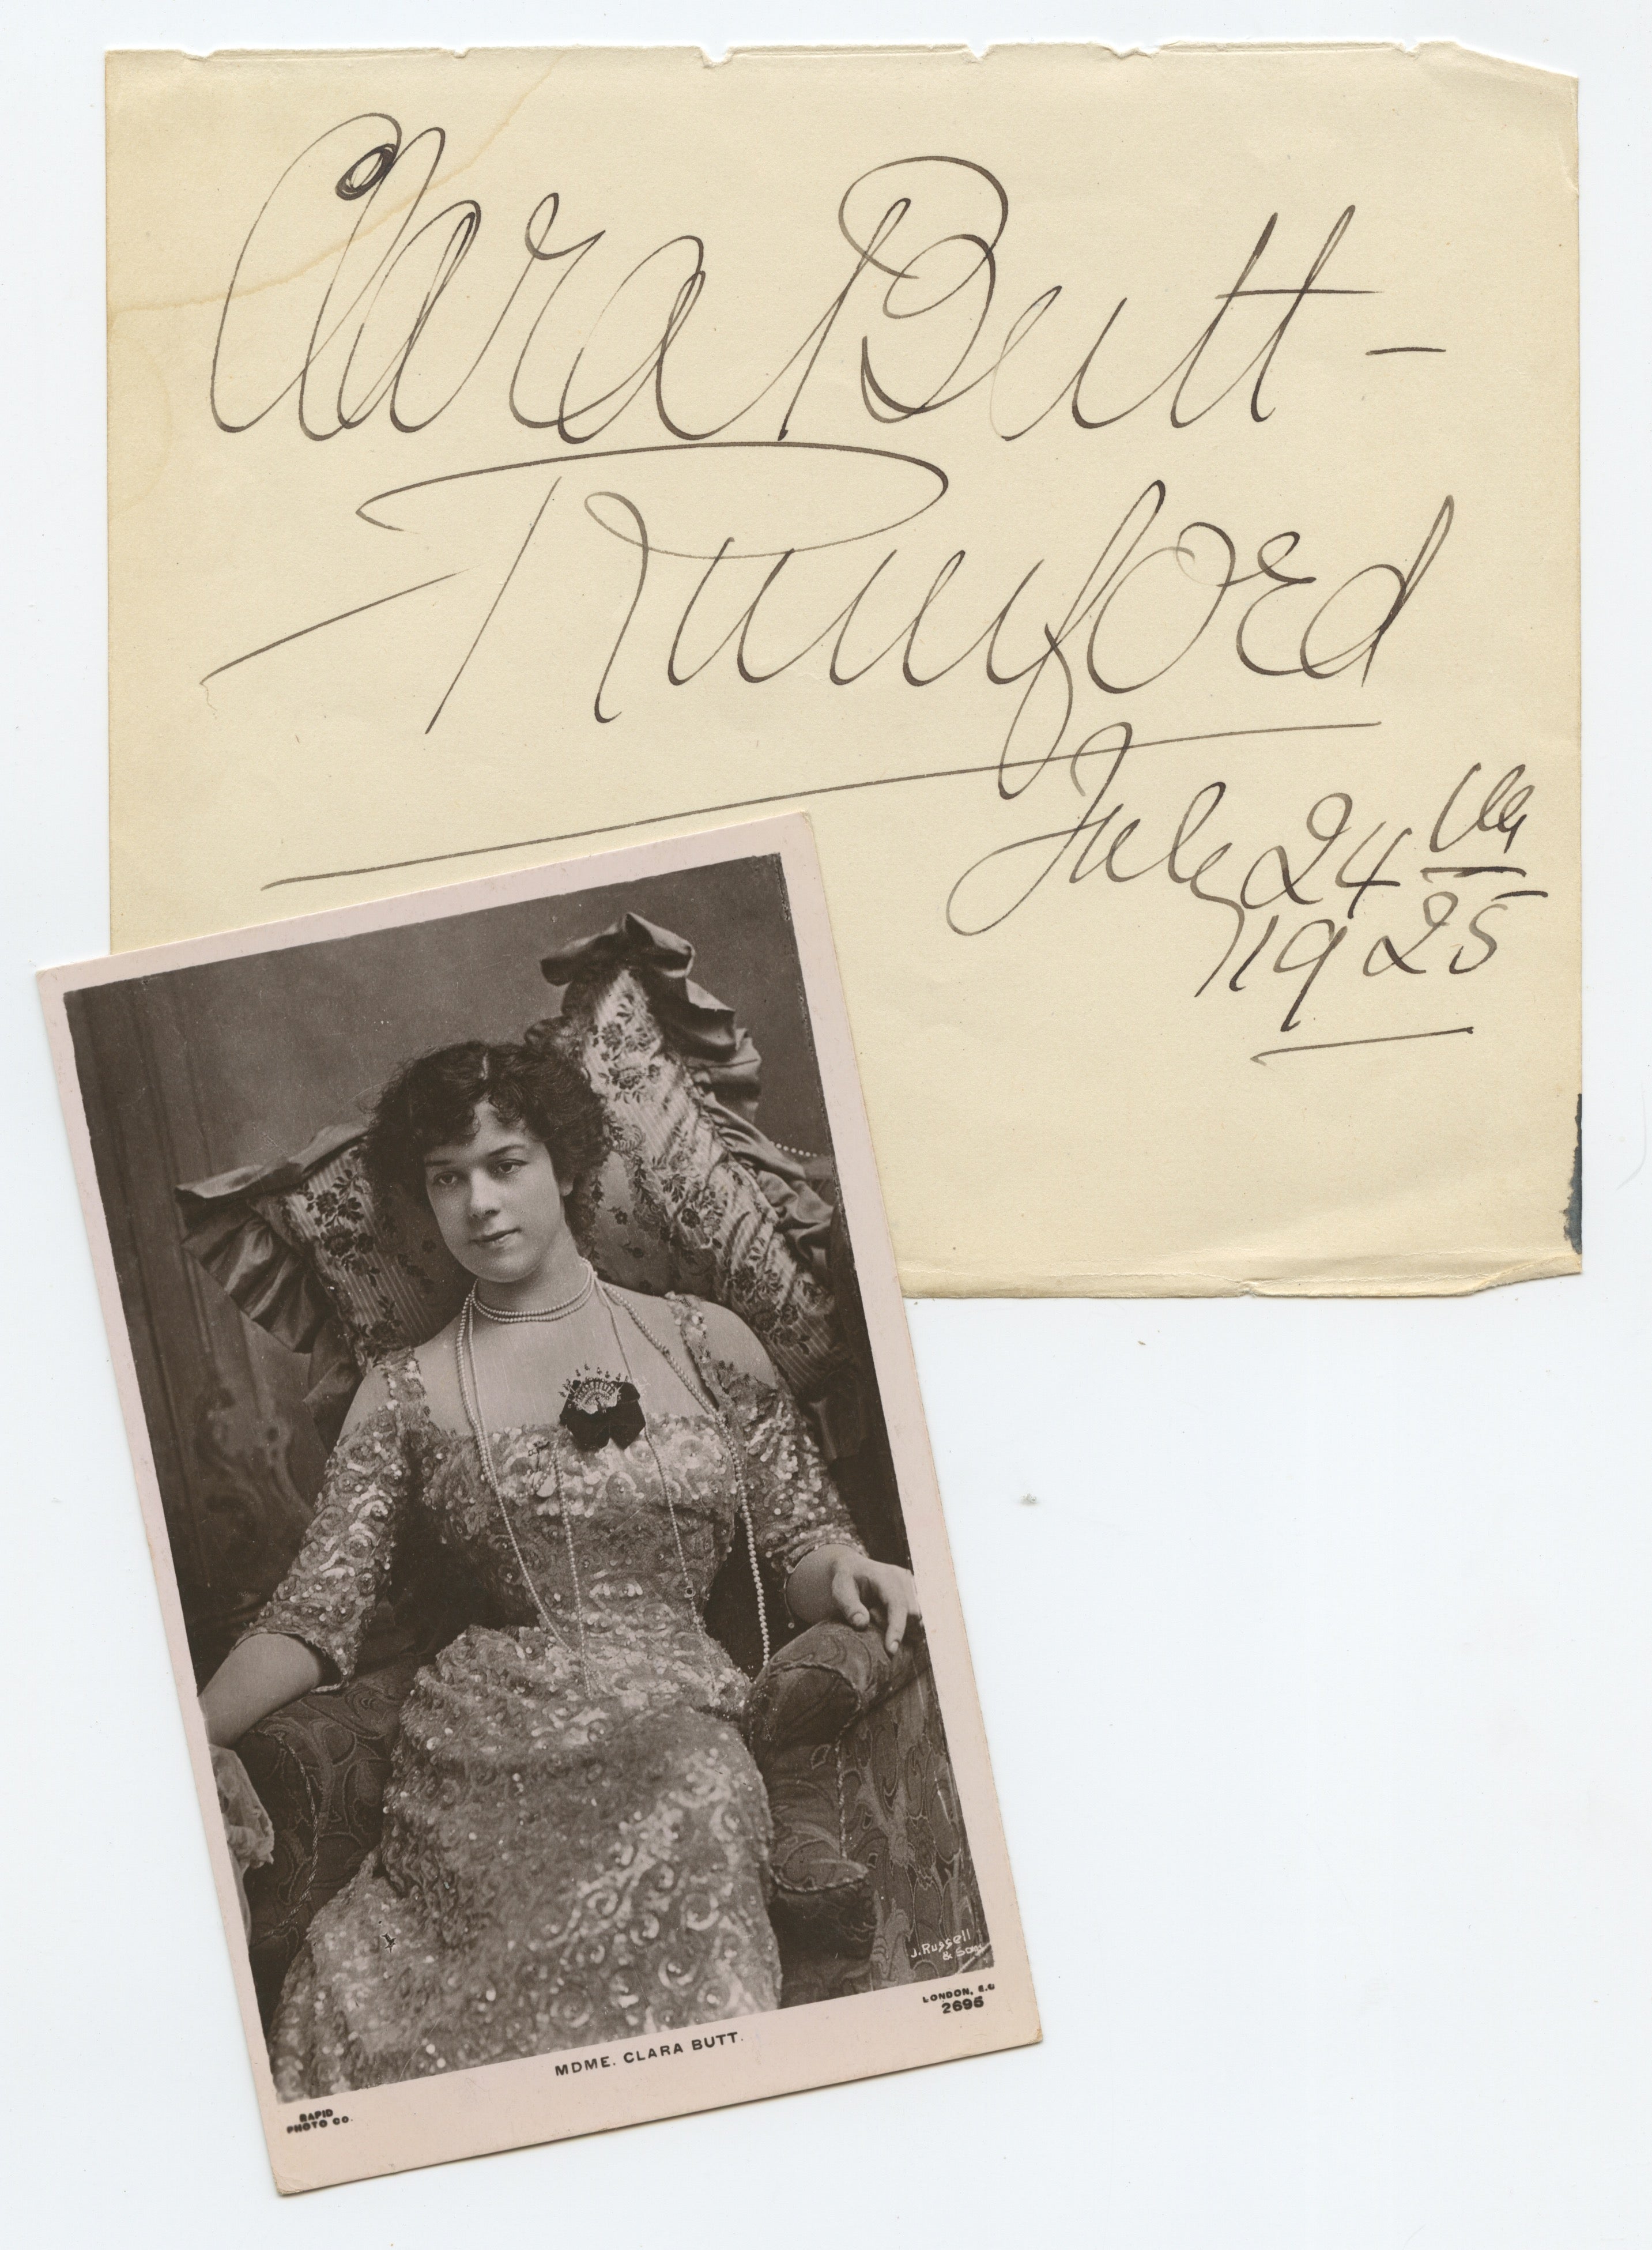 Clara Butt–
Rumford
July 24th
1925
J. Russell
& Sons
LONDON, E.C
2695
MDME. CLARA BUTT.
RAPID
PHOTO CO.